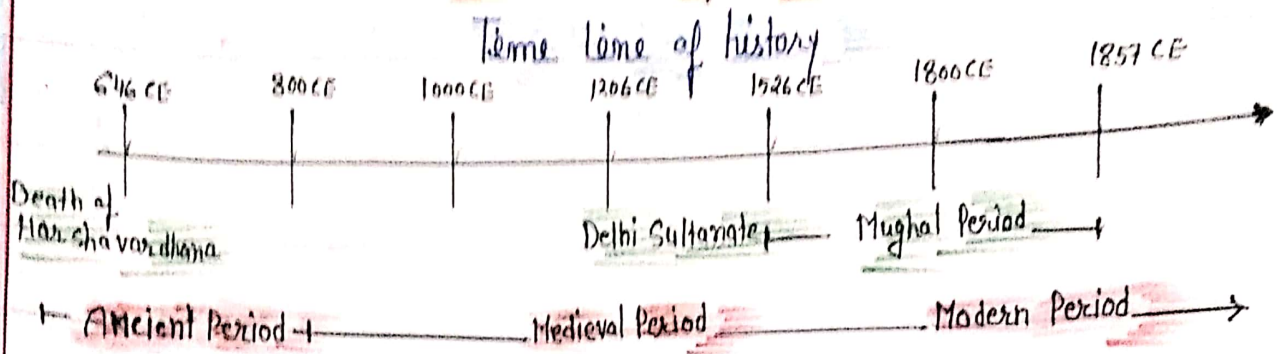 Time line of history
646 CE 800 CE 1000 CE 1206 CE 1526 CE 1800 CE 1857 CE
Death of
Harshavardhana
Delhi Sultanate Mughal Period
Ancient Period Medieval Period Modern Period